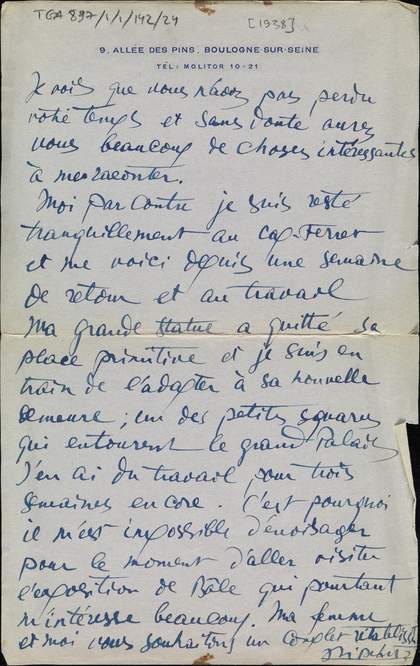 TGA 897/1/1/142/24 [1938]
9, ALLÉE DES PINS, BOULOGNE-SUR-SEINE
TÉL: MOLITOR 10-21
Je vois que vous n'avez pas perdu
votre temps et sans doute aurez
vous beaucoup de choses intéressantes
à me raconter.
Moi par contre je suis resté
tranquillement au Cap-Ferret
et me voici depuis une semaine
de retour et au travail
Ma grande statue a quitté sa
place primitive et je suis en
train de l'adapter à sa nouvelle
demeure ; un des petits squares
qui entourent le grand Palais
J'en ai du travail pour trois
semaines encore. C'est pourquoi
il m'est impossible d'envisager
pour le moment d'aller visiter
l'exposition de Bâle qui pourtant
m'intéresse beaucoup. Ma femme
et moi vous souhaitons un complet